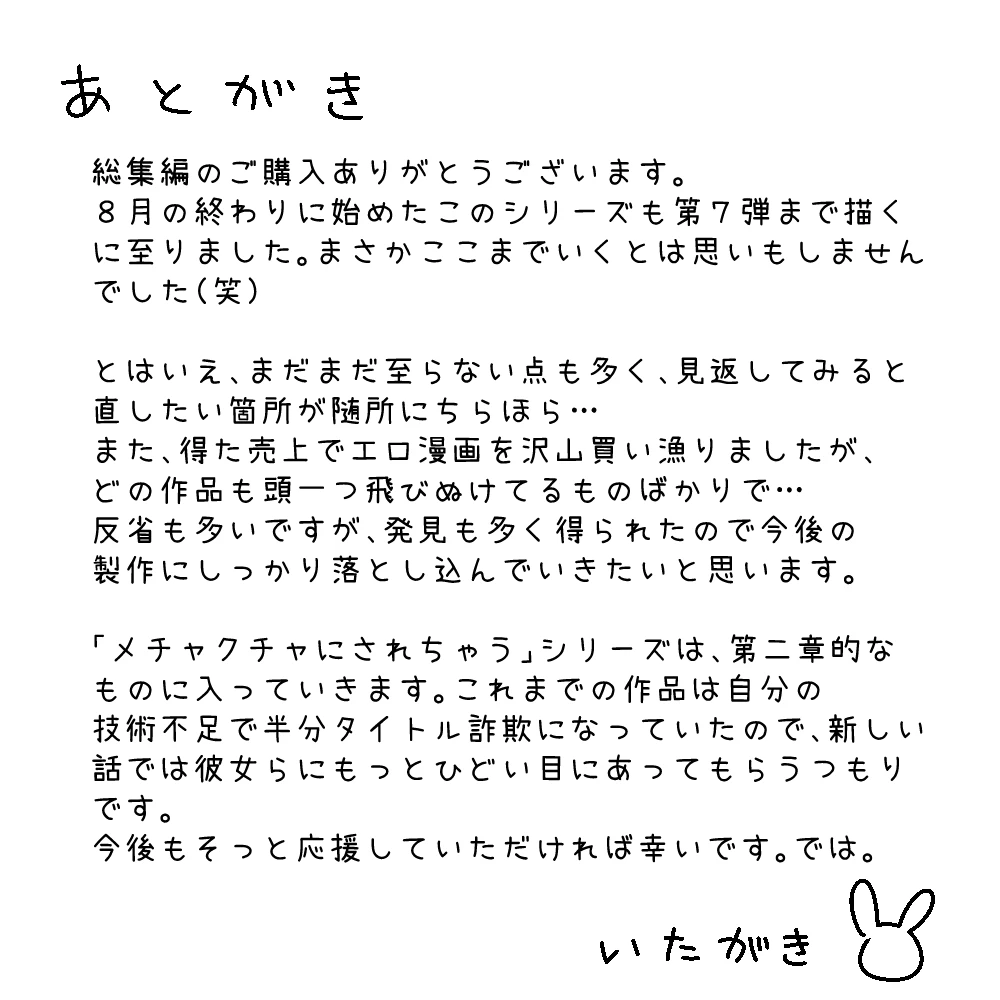 あとがき
総集編のご購入ありがとうございます。
８月の終わりに始めたこのシリーズも第７弾まで描く
に至りました。まさかここまでいくとは思いもしません
でした(笑)
とはいえ、まだまだ至らない点も多く、見返してみると
直したい箇所が随所にちらほら…
また、得た売上でエロ漫画を沢山買い漁りましたが、
どの作品も頭一つ飛びぬけてるものばかりで…
反省も多いですが、発見も多く得られたので今後の
製作にしっかり落とし込んでいきたいと思います。
「メチャクチャにされちゃう」シリーズは、第二章的な
ものに入っていきます。これまでの作品は自分の
技術不足で半分タイトル詐欺になっていたので、新しい
話では彼女らにもっとひどい目にあってもらうつもり
です。
今後もそっと応援していただければ幸いです。では。
いたがき